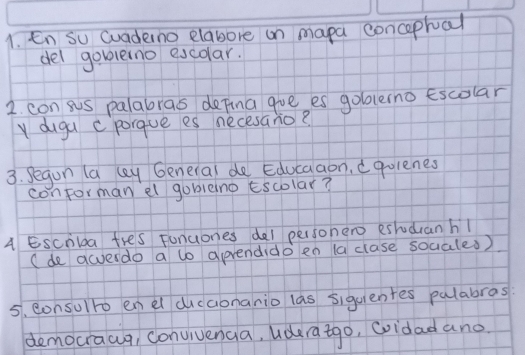 1. En su cuaderno elabore un mapa conceptual
del gobierno escolar.
2. con sus palabras defina que es gobierno Escolar
y diga ¿ porque es necesario?
3. Segun la ley General de Educacion, ¿ quienes
conforman el gobierno Escolar?
4 Escriba tres Funciones del personero estudianhil
(de acuerdo a lo aprendido en la clase sociales)
5. consulto en el diccionario las siguientes palabras:
democracia, convivencia, liderazgo, Ciudadano.